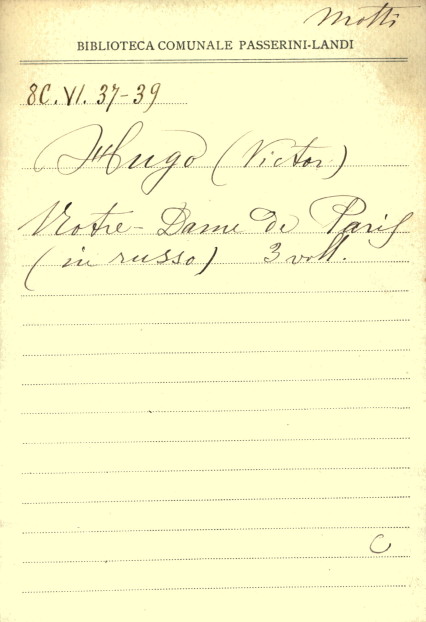 Motti
BIBLIOTECA COMUNALE PASSERINI-LANDI
8C. VI. 37-39
Hugo (Victor)
Notre-Dame de Paris
(in russo) 3 voll.
C